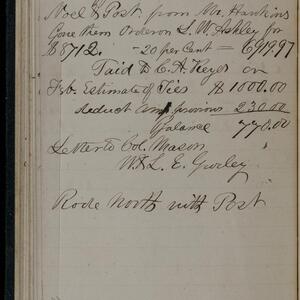 Noel & Post. from Mr. Hawkins
Gave them Order on L. W. Ashley for
$8712. - 20 per Cent = 6969.97
Paid to C. A. Keyes on
Feb. Estimate of Ties $1000.00
deduct previous 230.00
Balance 770.00
Letter to Col. Mason
W. & L. E. Gurley
Rode North with Post